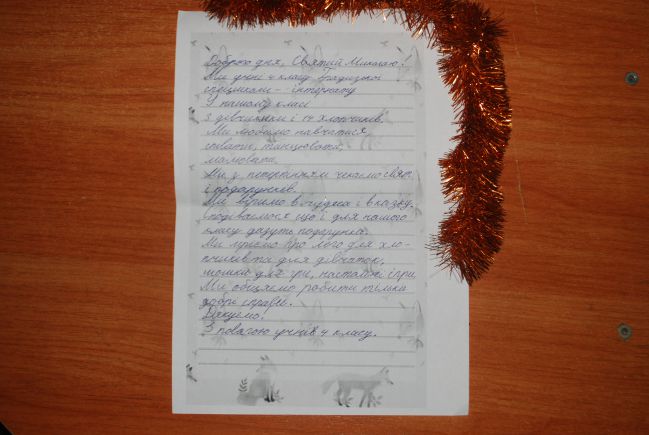 Доброго дня, Святий Миколаю!
Ми учні 4 класу Градизької
спецшколи - інтернату
У нашому класі
3 дівчинки і 14 хлопчиків.
Ми любимо навчатися,
співати, танцювати,
малювати.
Ми з нетерпінням чекаємо свят
і подарунків.
Ми віримо в чудеса і в казку.
Сподіваємося що і для нашого
класу дадуть подарунки.
Ми мріємо про лего для хло-
пчиків та для дівчаток,
мошки для гри, настольні ігри.
Ми обіцяємо робити тільки
добрі справи.
Дякуємо.
З повагою учнів 4 класу.